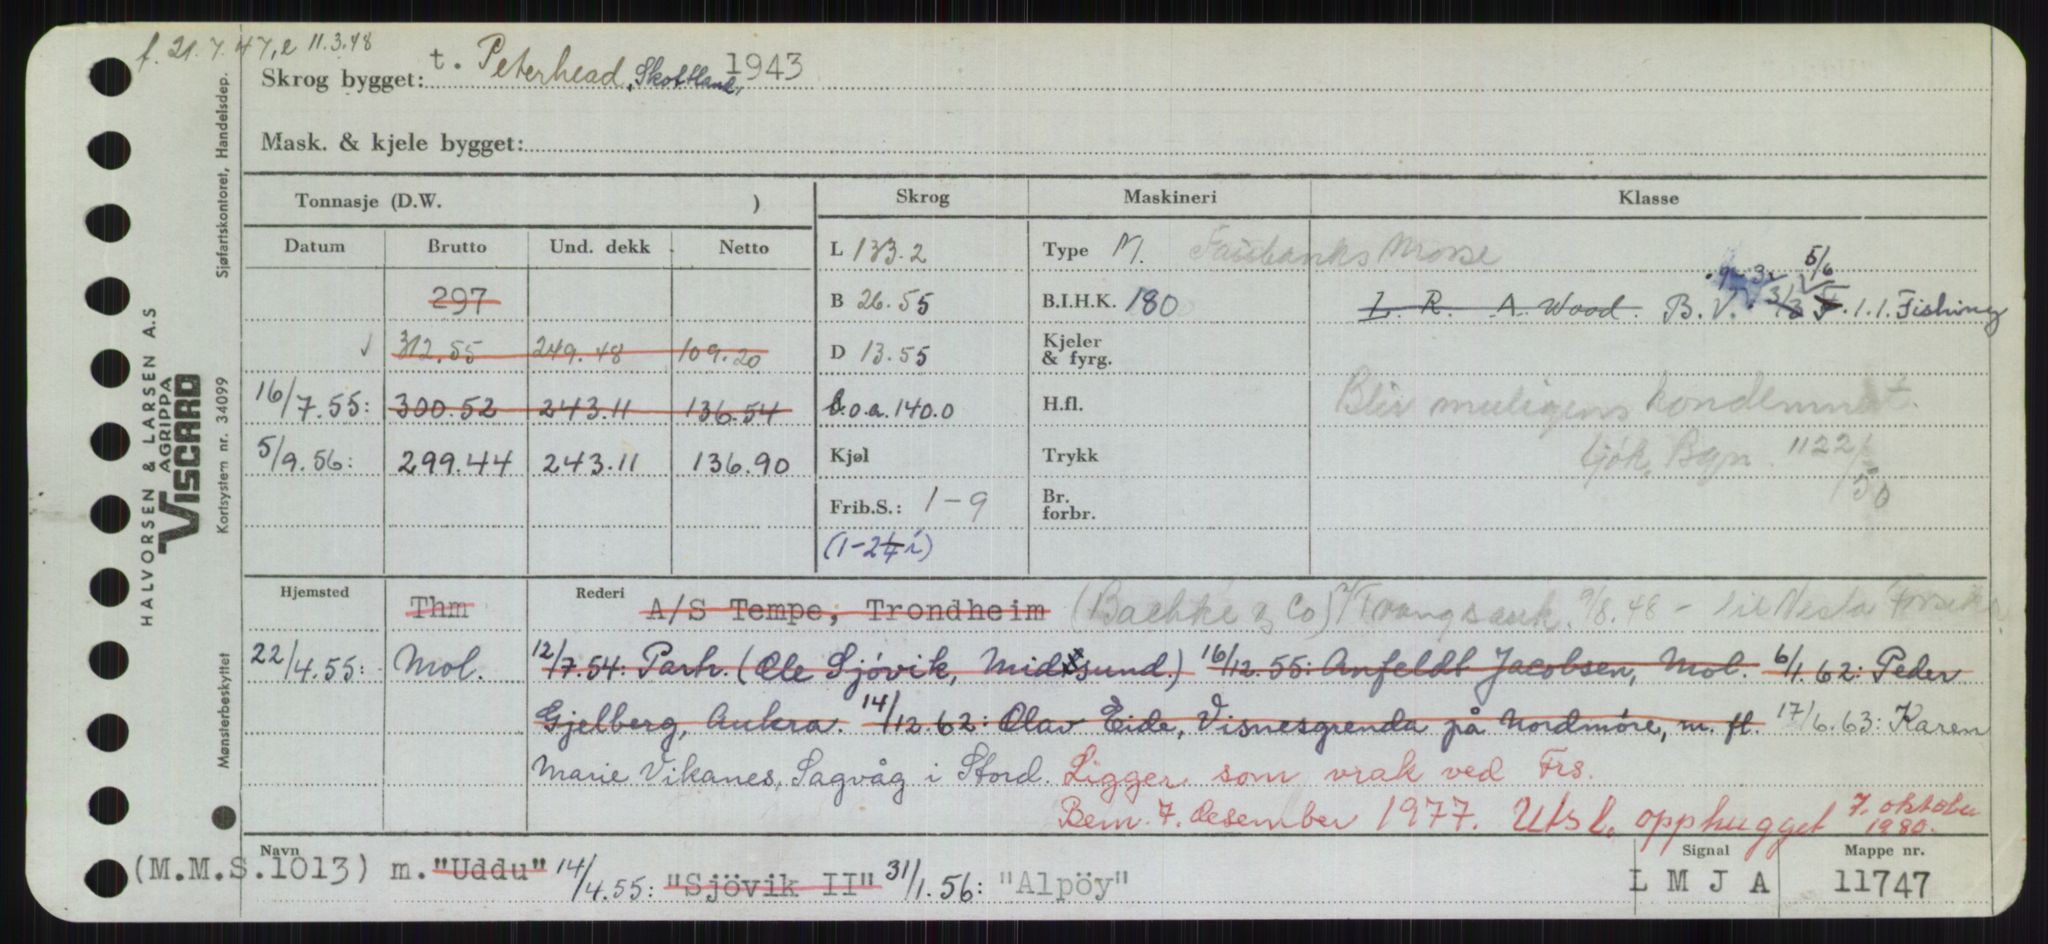 f. 21.7.47, e 11.3.48
Skrog bygget: t. Peterhead, Skottland, 1943
Mask. & kjele bygget:
Tonnasje (D.W. ) Skrog Maskineri Klasse
Datum Brutto Und. dekk Netto L 133.2 Type M. Fairbanks Morse
297 B 26.55 B.I.H.K. 180 L. R. A. Wood. B. V. 3/3 F. 1.1. Fishing
5/6
√ 312.55 249.48 109.20 D 13.55 Kjeler & fyrg.
16/7.55: 300.52 243.11 136.54 l.o.a. 140.0 H.fl. Blir muligens kondemnert.
5/9.56: 299.44 243.11 136.90 Kjøl Trykk Sjøk. Bgn. 1122/50
Frib.S.: 1-9 Br. forbr.
(1-2¼ i)
Hjemsted Thm Rederi A/S Tempe, Trondheim (Bachke & Co) Tvangsauk. 9/8.48 - til Vesta Forsikr.
22/4.55: Mol. 12/7.54: Parh. (Ole Sjövik, Midsund.) 16/12.55: Anfeldt Jacobsen, Mol. 6/1.62: Peder
Gjelberg, Aukra. 14/12.62: Olav Eide, Visnesgrenda på Nordmöre, m. fl. 17/6.63: Karen
Marie Vikanes, Sagvåg i Stord. Ligger som vrak ved Frs.
Bem. 7. desember 1977. Utsl. opphugget 7. oktober 1980.
Navn Signal Mappe nr.
(M.M.S.1013) m. "Uddu" 14/4.55: "Sjövik II" 31/1.56: "Alpöy" L M J A 11747
HALVORSEN & LARSEN A.S
AGRIPPA
VISCARD
Sjøfartskontoret, Handelsdep.
Kortsystem nr. 34099
Mønsterbeskyttet